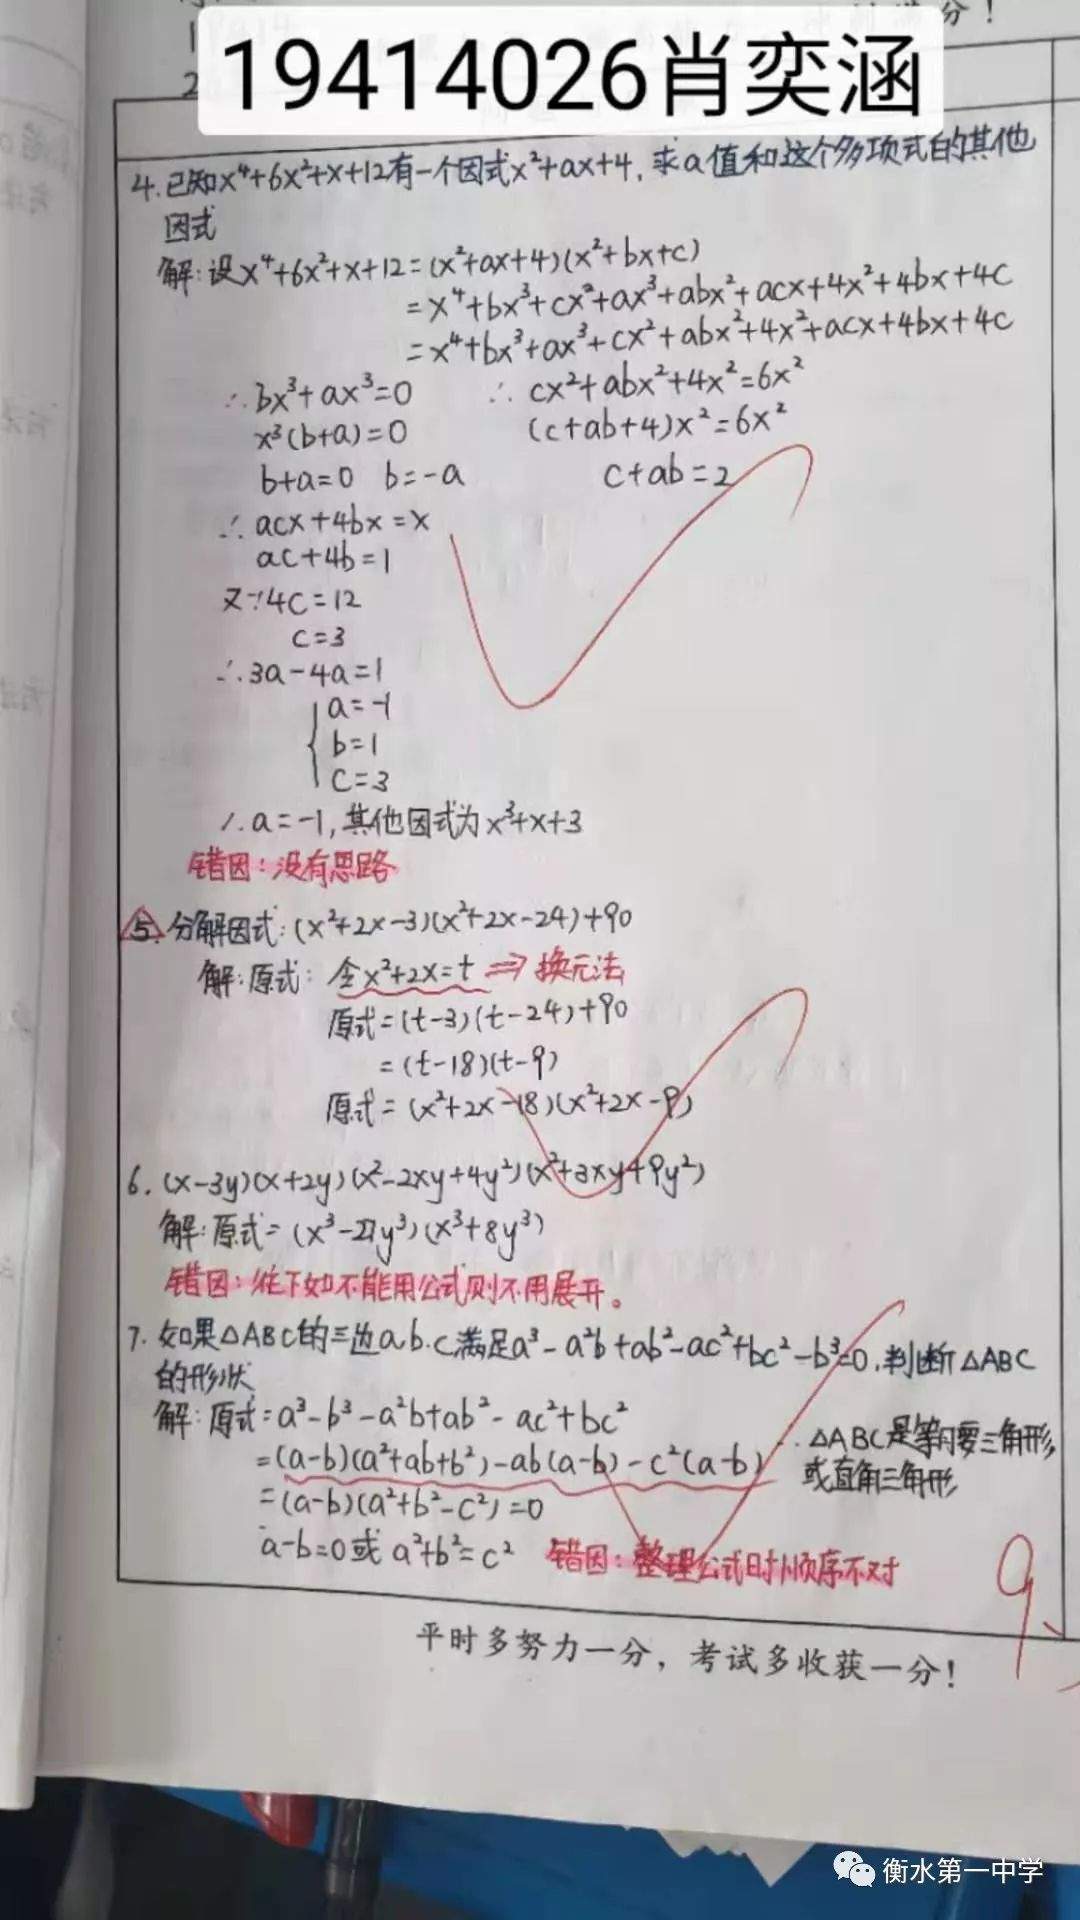 19414026肖奕涵
4.已知x⁴+6x²+x+12有一个因式x²+ax+4,求a值和这个多项式的其他
因式
解:设x⁴+6x²+x+12=(x²+ax+4)(x²+bx+c)
=x⁴+bx³+cx²+ax³+abx²+acx+4x²+4bx+4c
=x⁴+bx³+ax³+cx²+abx²+4x²+acx+4bx+4c
∴bx³+ax³=0 ∴cx²+abx²+4x²=6x²
x³(b+a)=0 (c+ab+4)x²=6x²
b+a=0 b=-a c+ab=2
∴acx+4bx=x
ac+4b=1
又∵4c=12
c=3
∴3a-4a=1
{a=-1
b=1
c=3
∴a=-1,其他因式为x³+x+3
错因:没有思路
5.分解因式:(x²+2x-3)(x²+2x-24)+90
解:原式:令x²+2x=t⇒换元法
原式=(t-3)(t-24)+90
=(t-18)(t-9)
原式=(x²+2x-18)(x²+2x-9)
6.(x-3y)(x+2y)(x²-2xy+4y²)(x²+3xy+9y²)
解:原式=(x³-27y³)(x³+8y³)
错因:往下如不能用公式则不用展开。
7.如果△ABC的三边a.b.c满足a³-a²b+ab²-ac²+bc²-b³=0,判断△ABC
的形状
解:原式=a³-b³-a²b+ab²-ac²+bc²
=(a-b)(a²+ab+b²)-ab(a-b)-c²(a-b)
=(a-b)(a²+b²-c²)=0
a-b=0或a²+b²=c²
∴△ABC是等腰三角形,
或直角三角形
错因:整理公式时顺序不对
平时多努力一分,考试多收获一分!
衡水第一中学